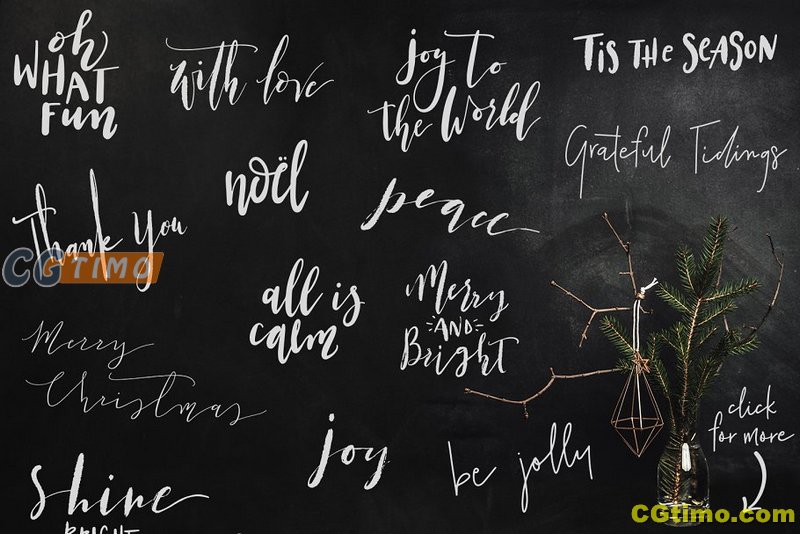 oh
WHAT
Fun
with love
joy to
the World
TIS THE SEASON
Grateful Tidings
noël
peace
Thank You
CGTIMO
all is
calm
Merry
AND
Bright
Merry
Christmas
joy
be jolly
click
for more
shine
BRIGHT
CGtimo.com